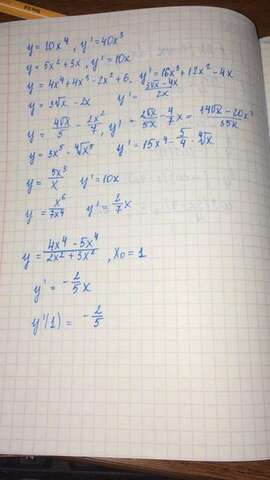 y = 10x⁴, y' = 40x³
y = 5x² + 3x, y' = 10x
y = 4x⁴ + 4x³ - 2x² + 6. y' = 16x³ + 12x² - 4x
y = 3√x - 2x y' = (3√x - 4x)/2x
y = 4√x/5 - 2x²/7, y' = 2√x/5x - 4/7 x = (14√x - 20x²)/35x
y = 3x⁵ - ⁴√x⁵ y' = 15x⁴ - 5/4 · ⁴√x
y = 5x³/x y' = 10x
y = x⁶/7x⁴ y' = 2/7 x
y = (4x⁴ - 5x⁴)/(2x² + 3x²), x₀ = 1
y' = -2/5 x
y'(1) = -2/5